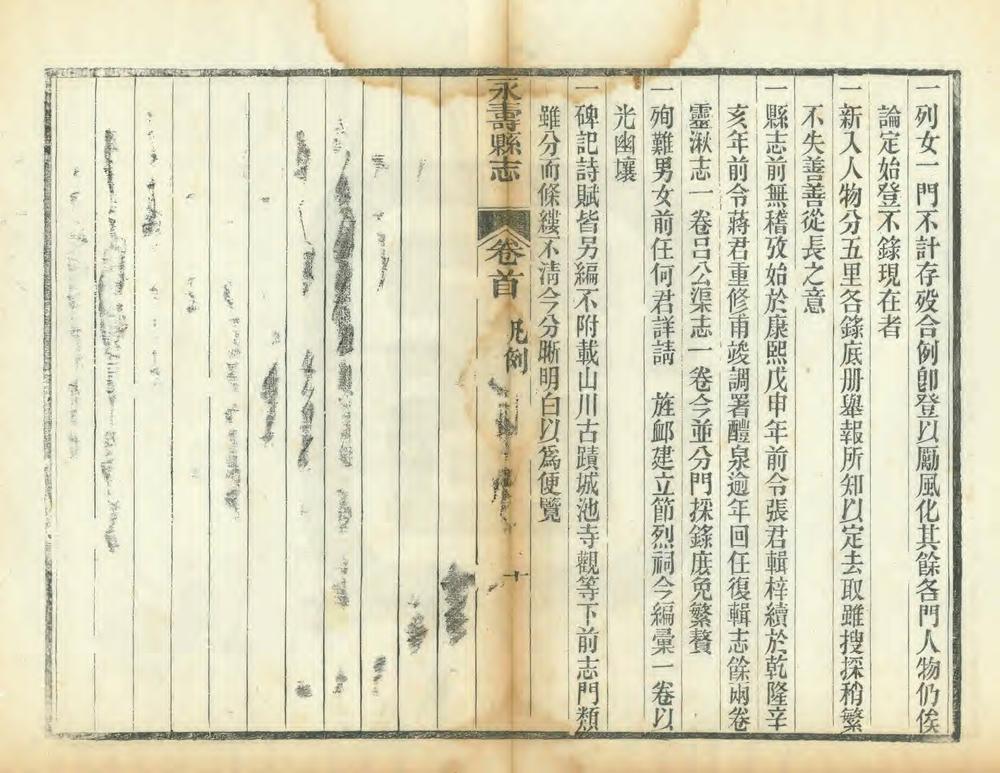 一列女一門不計存殁合例卽登以勵風化其餘各門人物仍俟
論定始登不錄現在者
一新入人物分五里各錄底册舉報所知以定去取雖搜採稍繁
不失善善從長之意
一縣志前無稽攷始於康熙戊申年前令張君輯梓續於乾隆辛
亥年前令蔣君重修甫竣調署醴泉逾年回任復輯志餘兩卷
靈湫志一卷呂公渠志一卷今並分門採錄庻免繁贅
一殉難男女前任何君詳請　旌䘏建立節烈祠今編彙一卷以
光幽壤
一碑記詩賦皆另編不附載山川古蹟城池寺觀等下前志門類
雖分而條縷不淸今分晰明白以爲便覽
永壽縣志
卷首
凡例
十